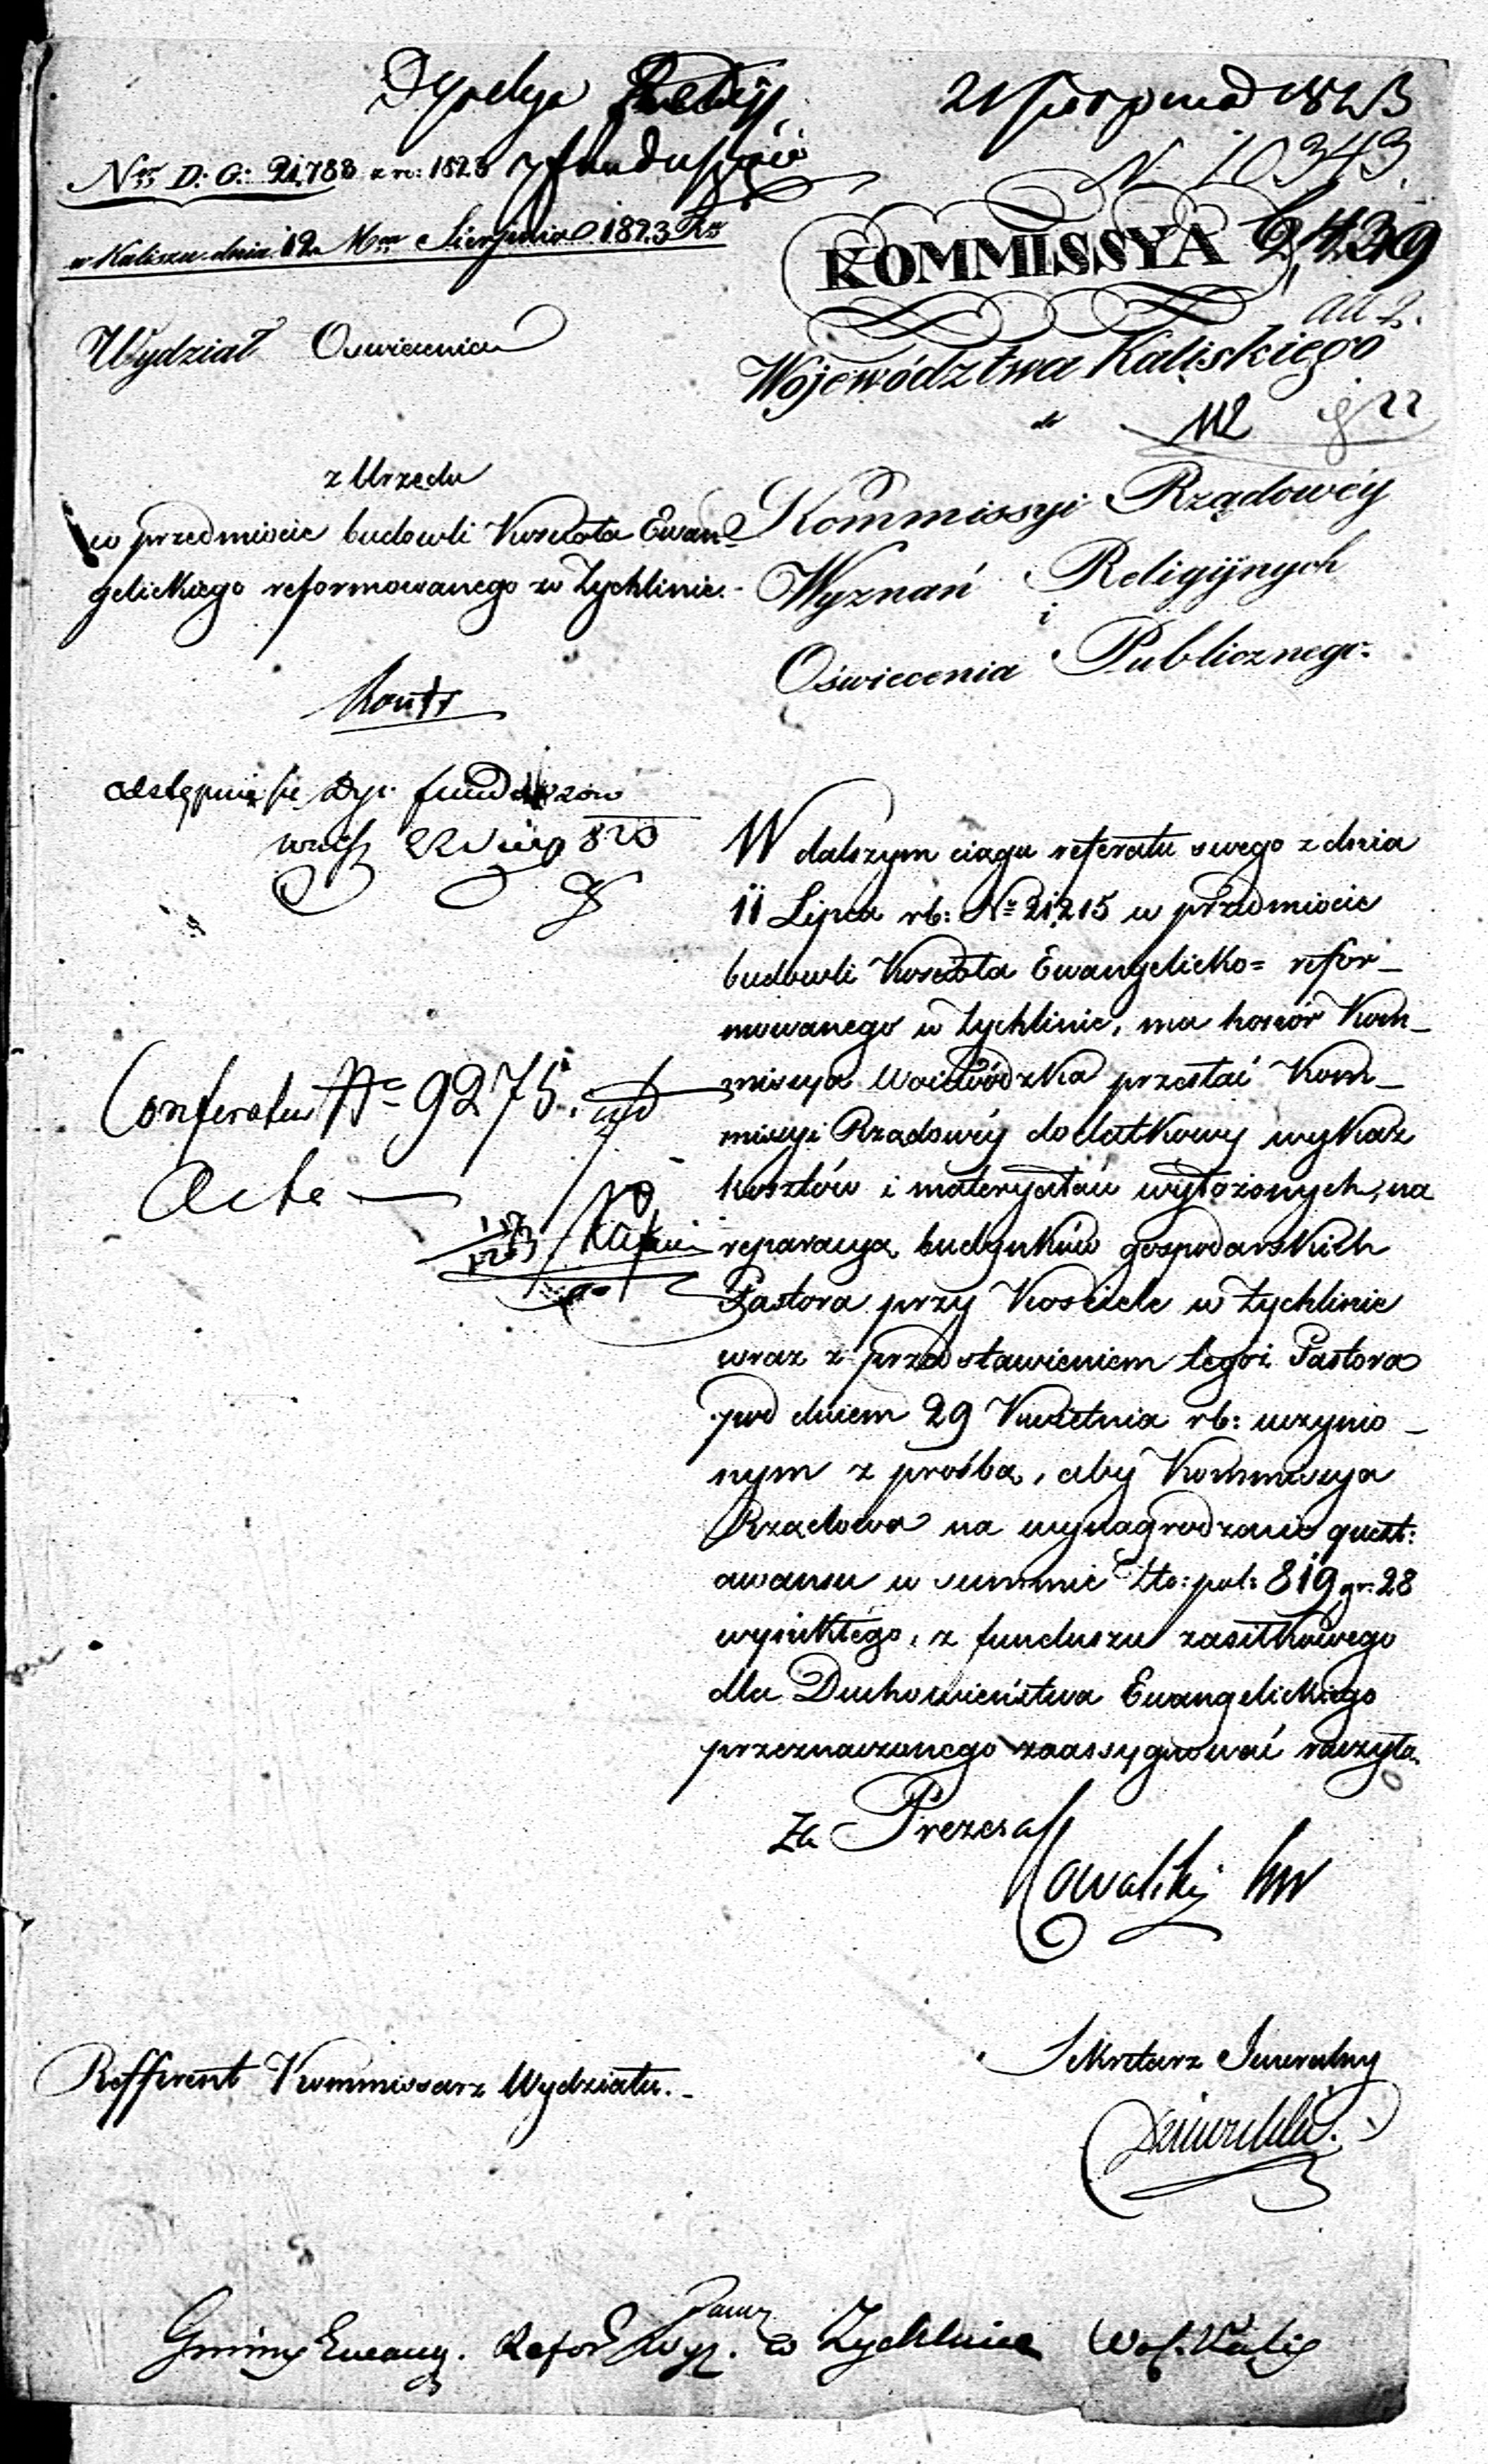 21 Sierpnia 1823
N. 10343.
Nro D: G: 21,788 z ro: 1823
Funduszów
w Kaliszu dnia 12 Mca Sierpnia 1823 Ro
KOMMISSYA
Województwa Kaliskiego
do
Wydział Oswiecenia
z Urzędu
w przedmiocie budowli Kościoła Ewan-
gelickiego reformowanego w Zychlinie.-
Kommissyi Rządowéy
Wyznań Religiynych
i
Oświecenia Publicznego.
odstępuie się Dyr. funduszów
W dalszym ciągu referatu swego z dnia
11 Lipca rb: No 21,215 w przedmiocie
budowli Kościoła Ewangelicko= refor-
mowanego w Zychlinie, ma honor Kom-
missya Woiewódzka przesłać Kom-
missyi Rządowéy dodatkowy wykaz
kosztów i materyałów wyłożonych, na
reparacyą budynków gospodarskich
Pastora przy Kościele w Zychlinie
wraz z przedstawieniem tegoż Pastora
pod dniem 29 Kwietnia rb: uczynio-
nym z prośbą, aby Kommissya
Rządowa na wynagrodzenie quest:
awansu w summie Złto: pol: 819 gr: 28
wynikłego, z funduszu zasiłkowego
dla Duchowieństwa Ewangelickiego
przeznaczonego zaassygnować raczyła.
Conferatur No 9275.
Acta
Za Prezesa
Kowalski
Sekretarz Jeneralny
Refferent Kommissarz Wydziału.-
Gminy Ewang. Refor. w Zychlinie Woj. Kalis